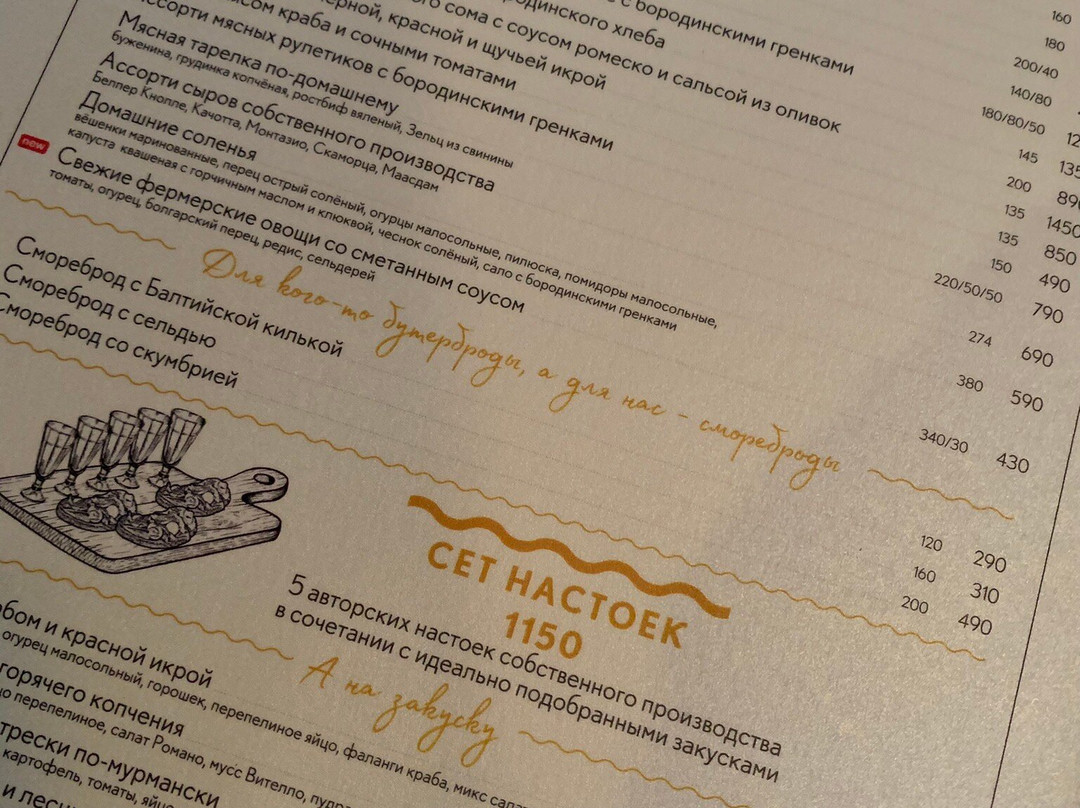 с бородинскими гренками
бородинского хлеба
сома с соусом ромеско и сальсой из оливок
красной и щучьей икрой
краба и сочными томатами
мясных рулетиков с бородинскими гренками
Мясная тарелка по-домашнему
буженина, грудинка копчёная, ростбиф вяленый, Зельц из свинины
Ассорти сыров собственного производства
Белпер Кнолле, Качотта, Монтазио, Скаморца, Маасдам
Домашние соленья
вёшенки маринованные, перец острый солёный, огурцы малосольные, пилюска, помидоры малосольные,
капуста квашеная с горчичным маслом и клюквой, чеснок солёный, сало с бородинскими гренками
new Свежие фермерские овощи со сметанным соусом
томаты, огурец, болгарский перец, редис, сельдерей
160
180
200/40
140/80
180/80/50
145
200
135 1450
135 850
150 490
220/50/50 790
274 690
380 590
340/30 430
Для кого-то бутерброды, а для нас - смореброды
Смореброд с Балтийской килькой 120 290
Смореброд с сельдью 160 310
Смореброд со скумбрией 200 490
СЕТ НАСТОЕК
1150
5 авторских настоек собственного производства
в сочетании с идеально подобранными закусками
А на закуску
и красной икрой
огурец малосольный, горошек, перепелиное яйцо, фаланги краба, микс
горячего копчения
перепелиное, салат Романо, мусс Вителло,
трески по-мурмански
картофель, томаты,
и